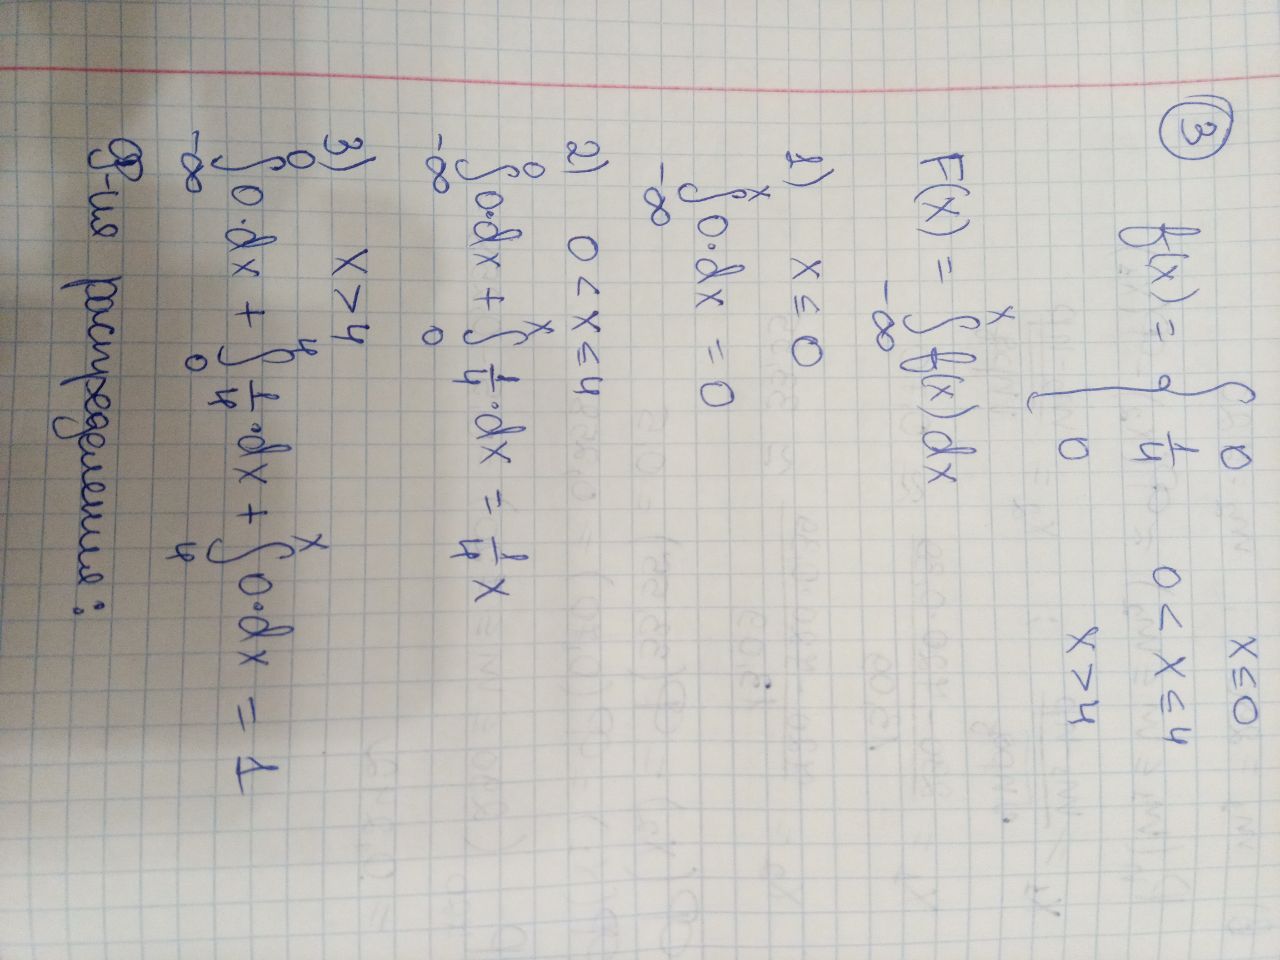 3
f(x) = { 0 x ≤ 0
1/4 0 < x ≤ 4
0 x > 4
F(x) = ∫_{-∞}^{x} f(x) dx
1) x ≤ 0
∫_{-∞}^{x} 0·dx = 0
2) 0 < x ≤ 4
∫_{-∞}^{0} 0·dx + ∫_{0}^{x} 1/4·dx = 1/4 x
3) x > 4
∫_{-∞}^{0} 0·dx + ∫_{0}^{4} 1/4·dx + ∫_{4}^{x} 0·dx = 1
Ф-ия распределения: